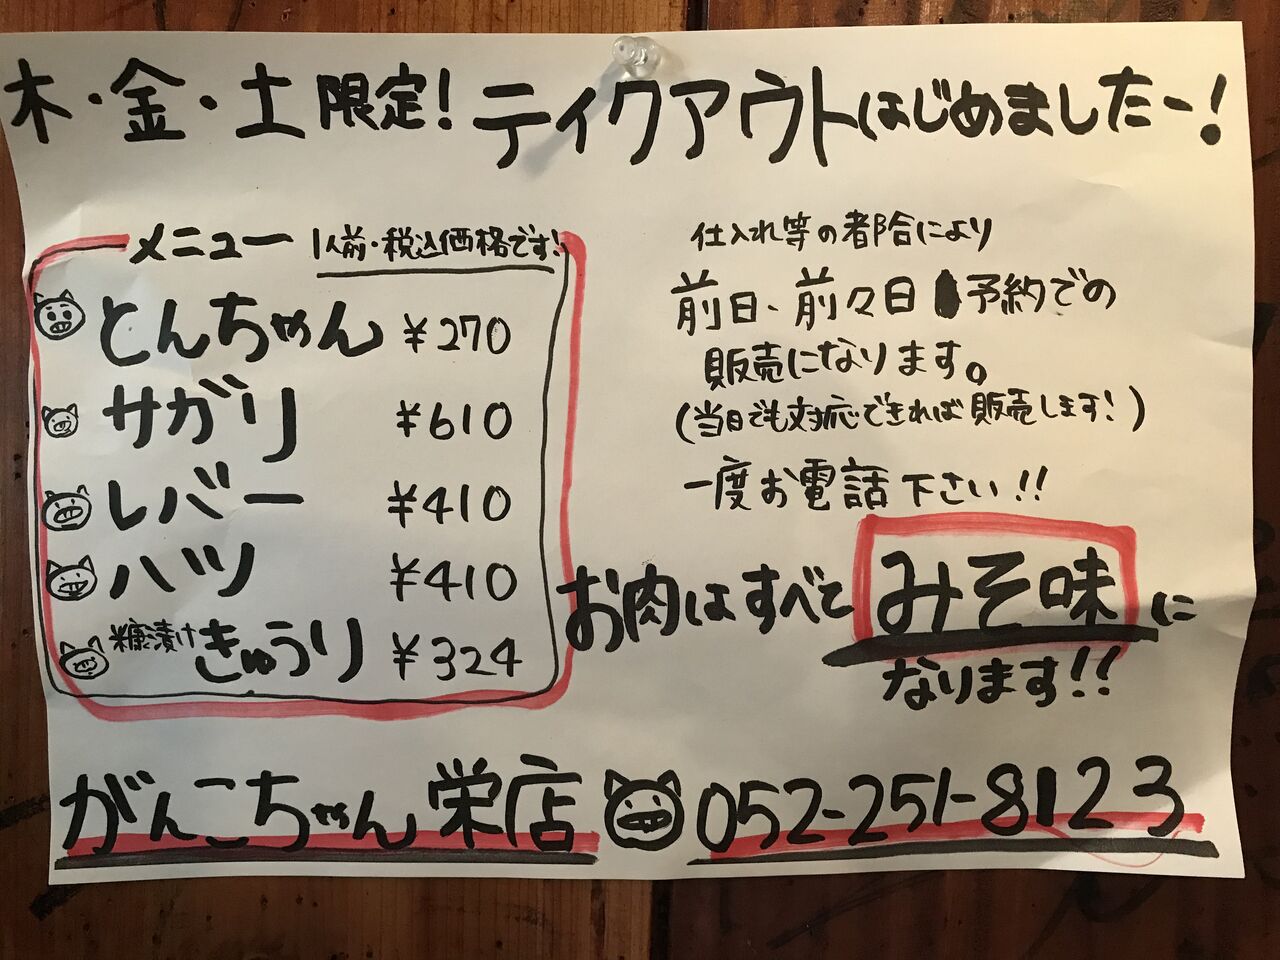 木・金・土 限定! テイクアウトはじめましたー!
メニュー 1人前・税込価格です!
とんちゃん ¥270
サガリ ¥610
レバー ¥410
ハツ ¥410
糠漬け きゅうり ¥324
仕入れ等の都合により
前日、前々日 予約での
販売になります。
(当日でも対応できれば販売します!)
一度お電話下さい!!
お肉はすべて みそ味 に
なります!!
がんこちゃん 栄店 052-251-8123